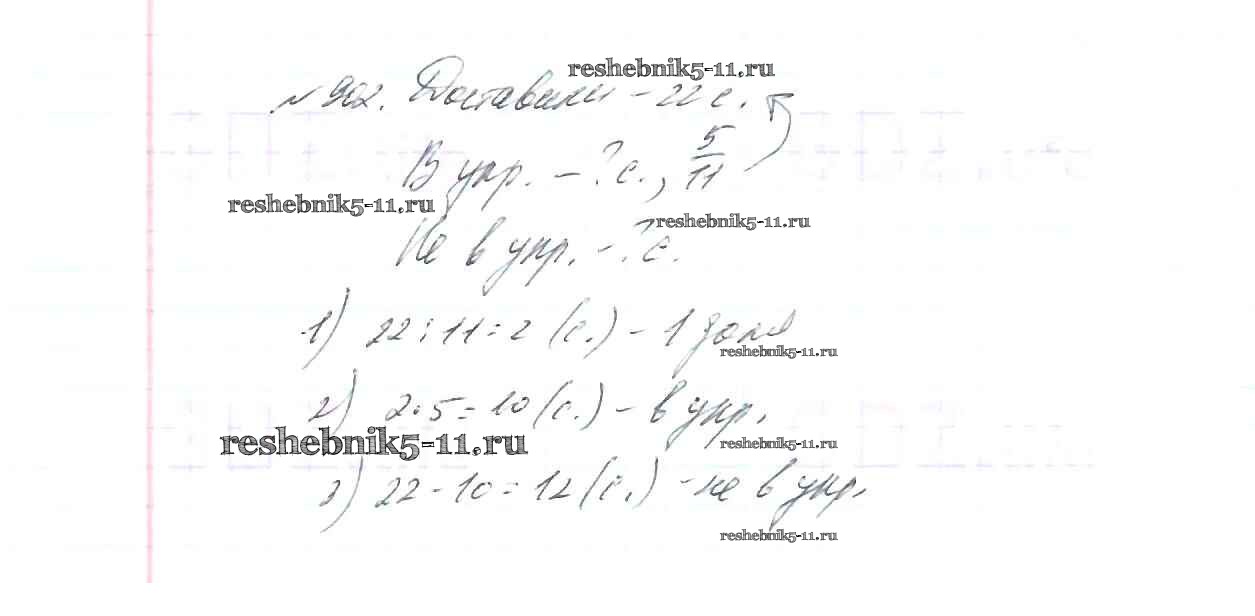 reshebnik5-11.ru
№902. Доставили - 22 с.
В упр. - ? с., 5/11
reshebnik5-11.ru
reshebnik5-11.ru
Не в упр. - ? с.
1) 22:11=2 (с.) - 1 доля
reshebnik5-11.ru
2) 2·5=10 (с.) - в упр.
reshebnik5-11.ru
reshebnik5-11.ru
3) 22-10=12 (с.) - не в упр.
reshebnik5-11.ru